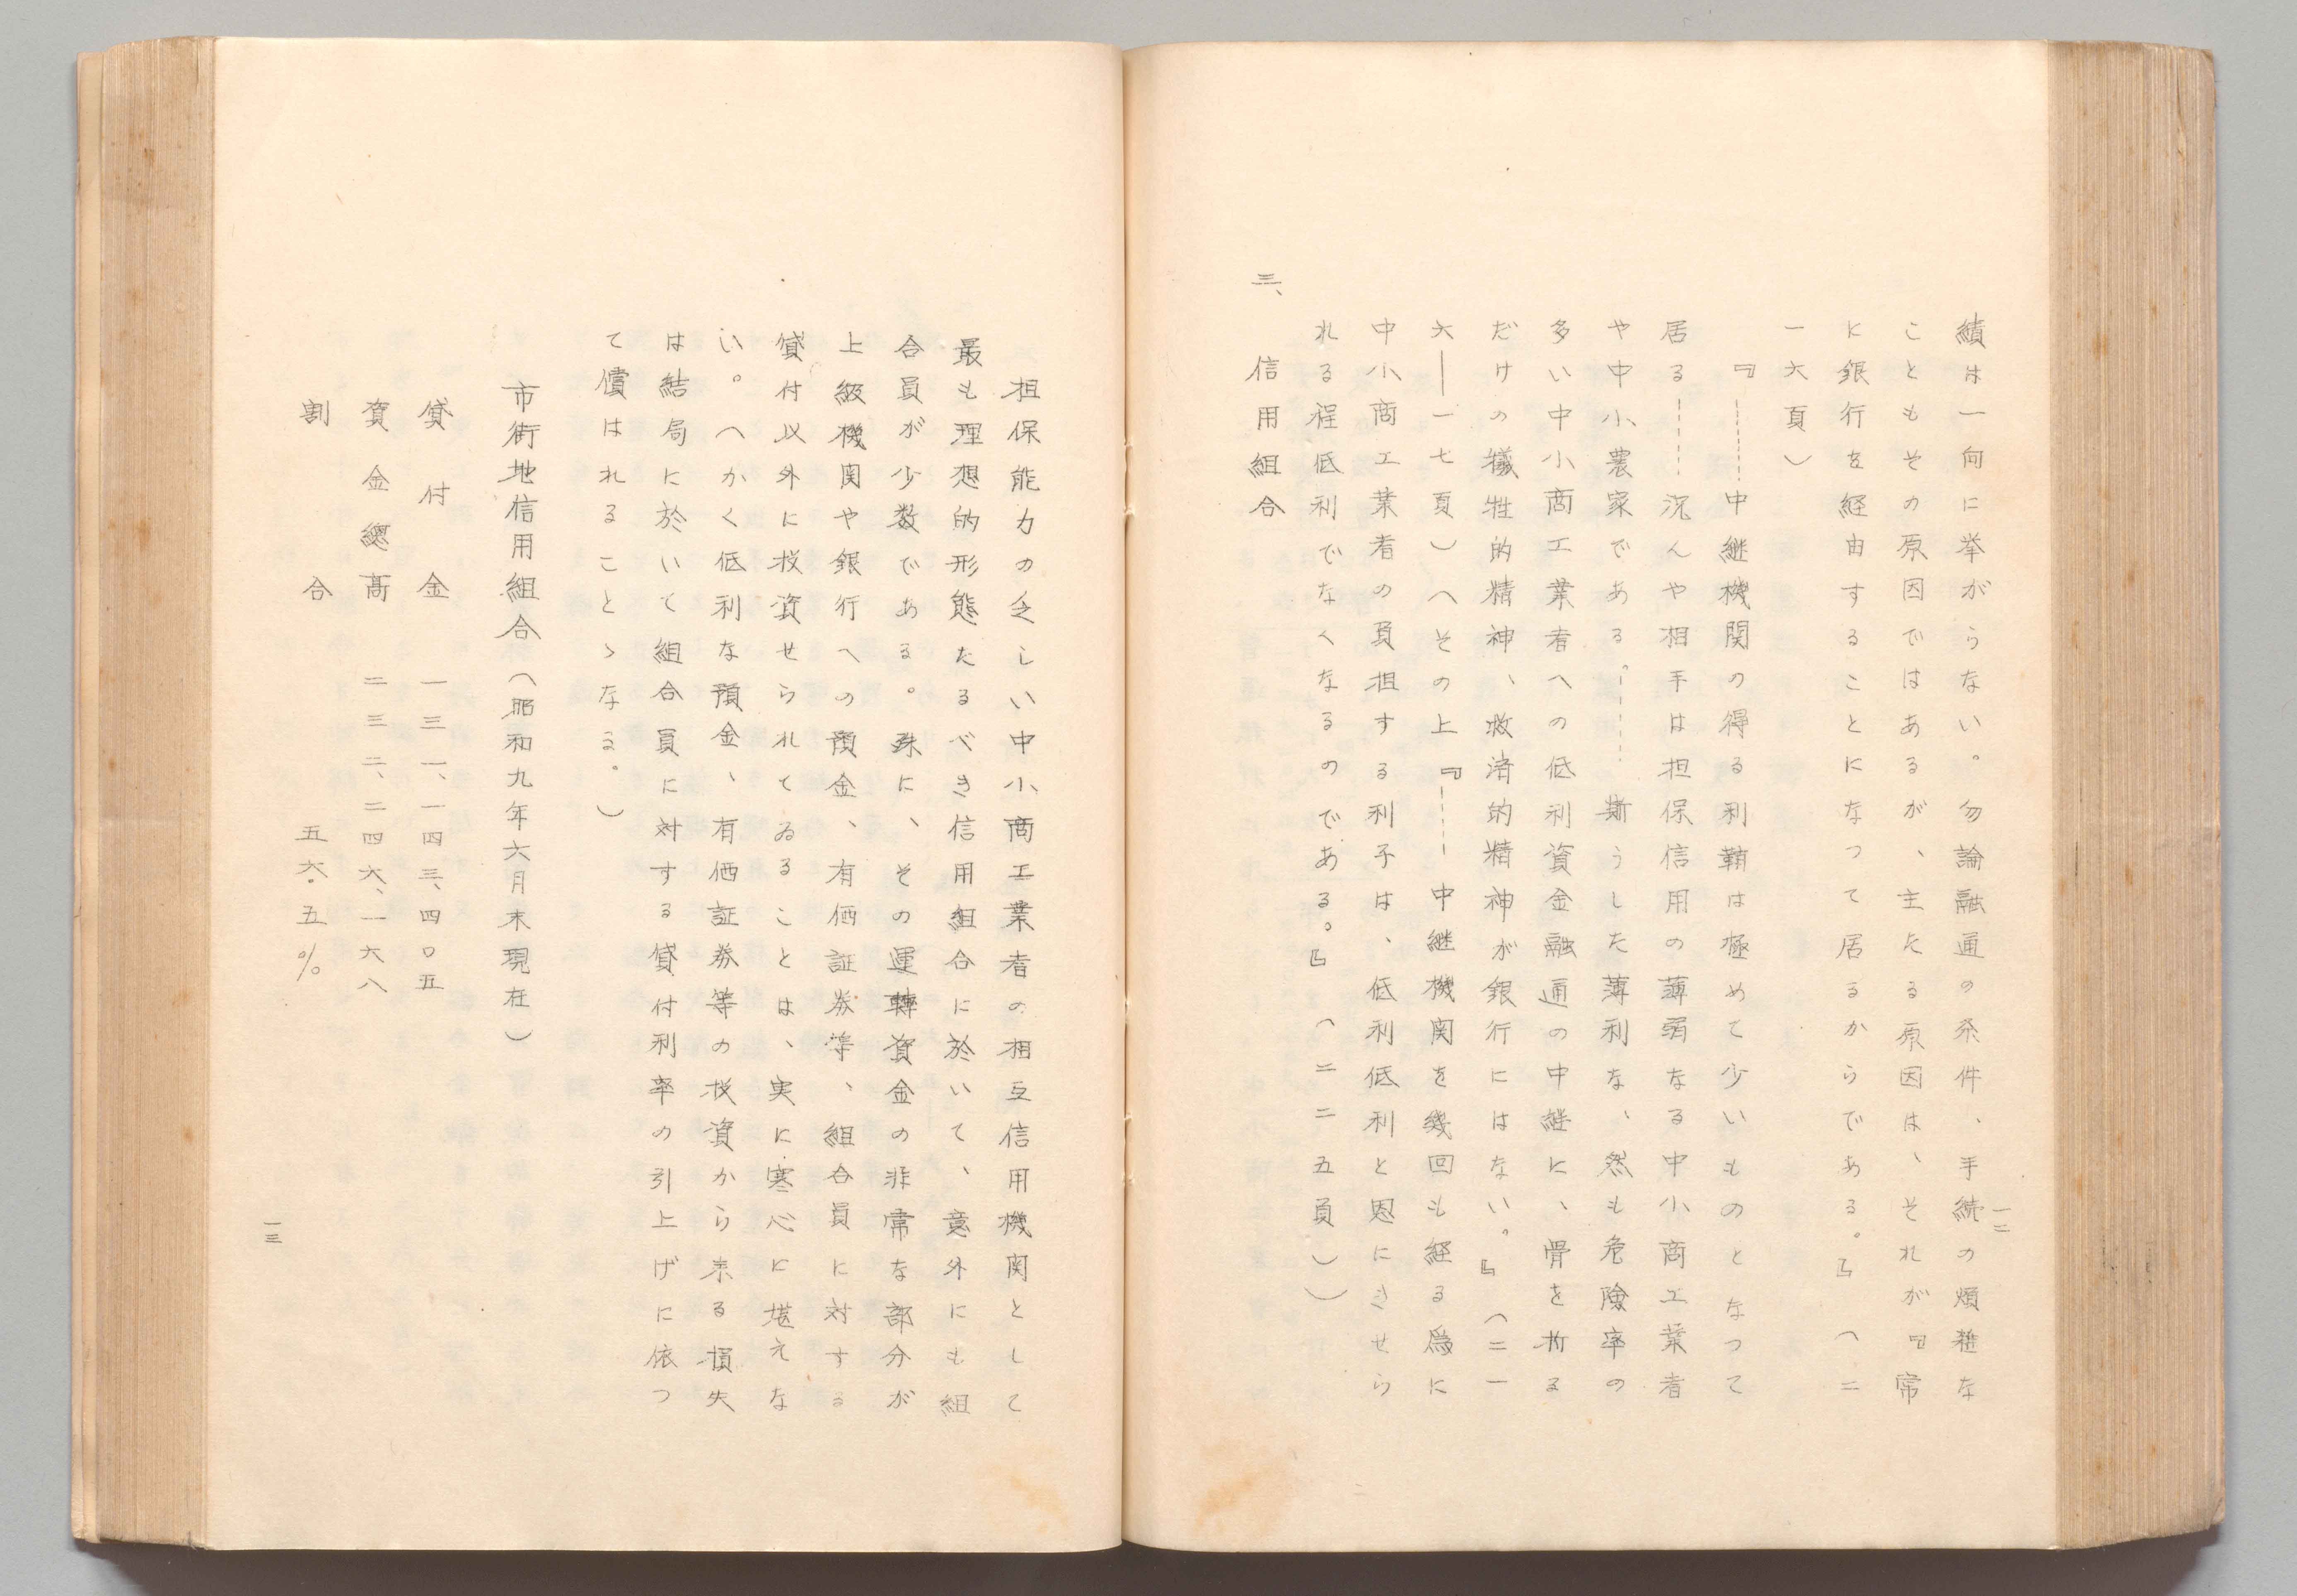 績は一向に挙がらない。勿論融通の条件、手続の煩雑な
こともその原因ではあるが、主たる原因は、それが『常
に銀行を経由することになつて居るからである。』（二
一六頁）
『………中継機関の得る利鞘は極めて少いものとなつて
居る………況んや相手は担保信用の薄弱なる中小商工業者
や中小農家である。………斯うした薄利な、然も危険率の
多い中小商工業者への低利資金融通の中継に、骨を折る
だけの犠牲的精神、救済的精神が銀行にはない。』（二一
六―一七頁）（その上『………中継機関を幾回も経る為に
中小商工業者の負担する利子は、低利低利と恩にきせら
れる程低利でなくなるのである。』（二二五頁））
三、信用組合
一二
担保能力の乏しい中小商工業者の相互信用機関として
最も理想的形態たるべき信用組合に於いて、意外にも組
合員が少数である。殊に、その運轉資金の非常な部分が
上級機関や銀行への預金、有価証券等、組合員に対する
貸付以外に投資せられてゐることは、実に寒心に堪えな
い。（かく低利な預金、有価証券等の投資から来る損失
は結局に於いて組合員に対する貸付利率の引上げに依つ
て償はれることゝなる。）
市街地信用組合（昭和九年六月末現在）
貸付金　一三一、一四三、四〇五
資金總高　二三二、二四六、一六八
割合　五六・五％
一三